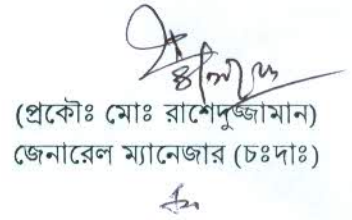 (প্রকৌঃ মোঃ রাশেদুজ্জামান)
জেনারেল ম্যানেজার (চঃদাঃ)